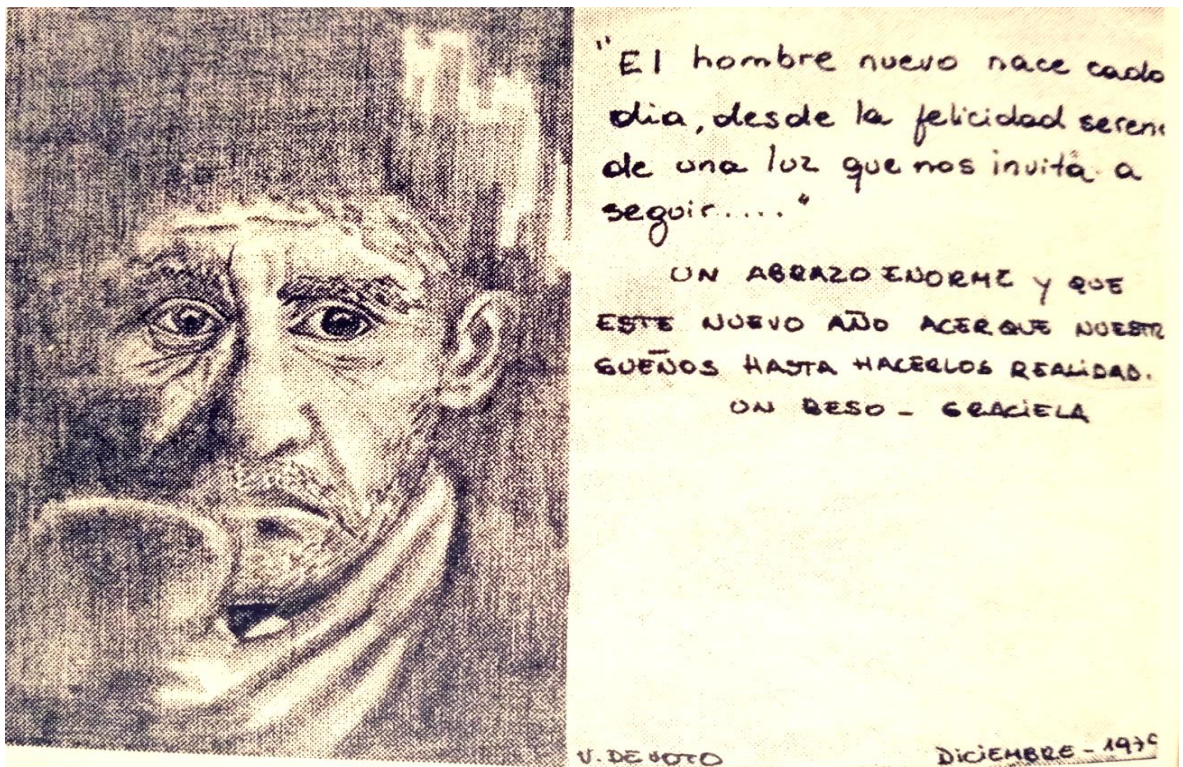 "El hombre nuevo nace cada
dia, desde la felicidad seren
de una luz que nos invita a
seguir....."
UN ABRAZO ENORME y QUE
ESTE NUEVO AÑO ACERQUE NUESTR
SUEÑOS HASTA HACERLOS REALIDAD.
UN BESO - GRACIELA
V. DEVOTO
DICIEMBRE -